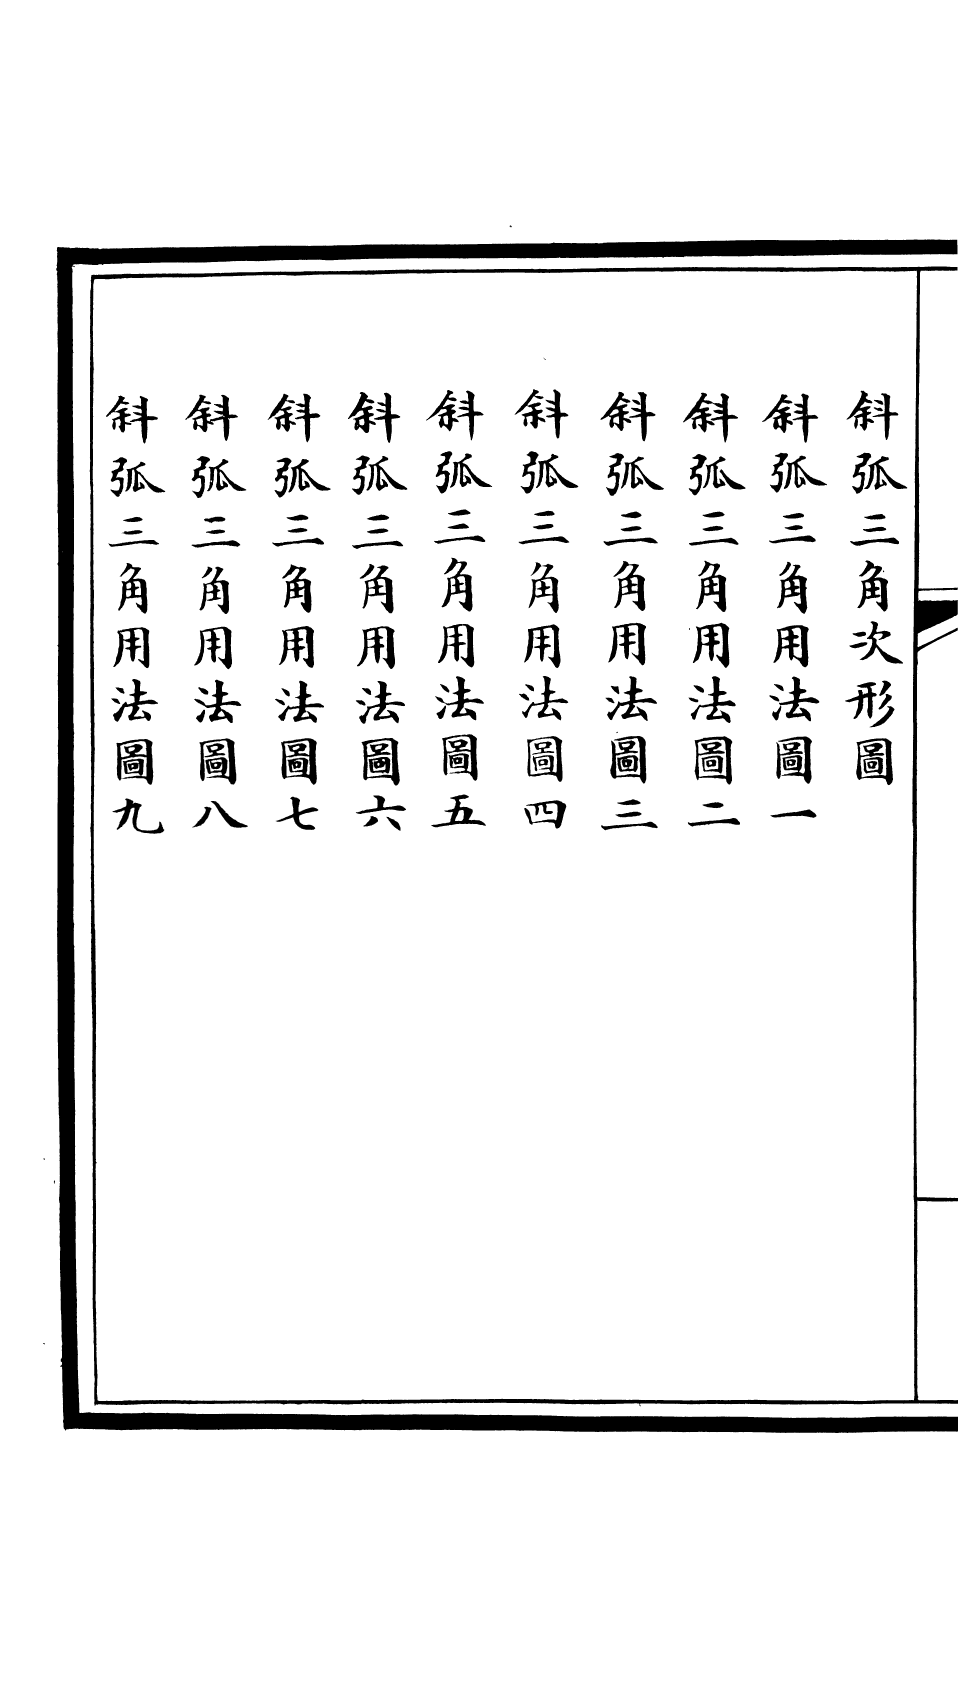 斜弧三角次形圖
斜弧三角用法圖一
斜弧三角用法圖二
斜弧三角用法圖三
斜弧三角用法圖四
斜弧三角用法圖五
斜弧三角用法圖六
斜弧三角用法圖七
斜弧三角用法圖八
斜弧三角用法圖九